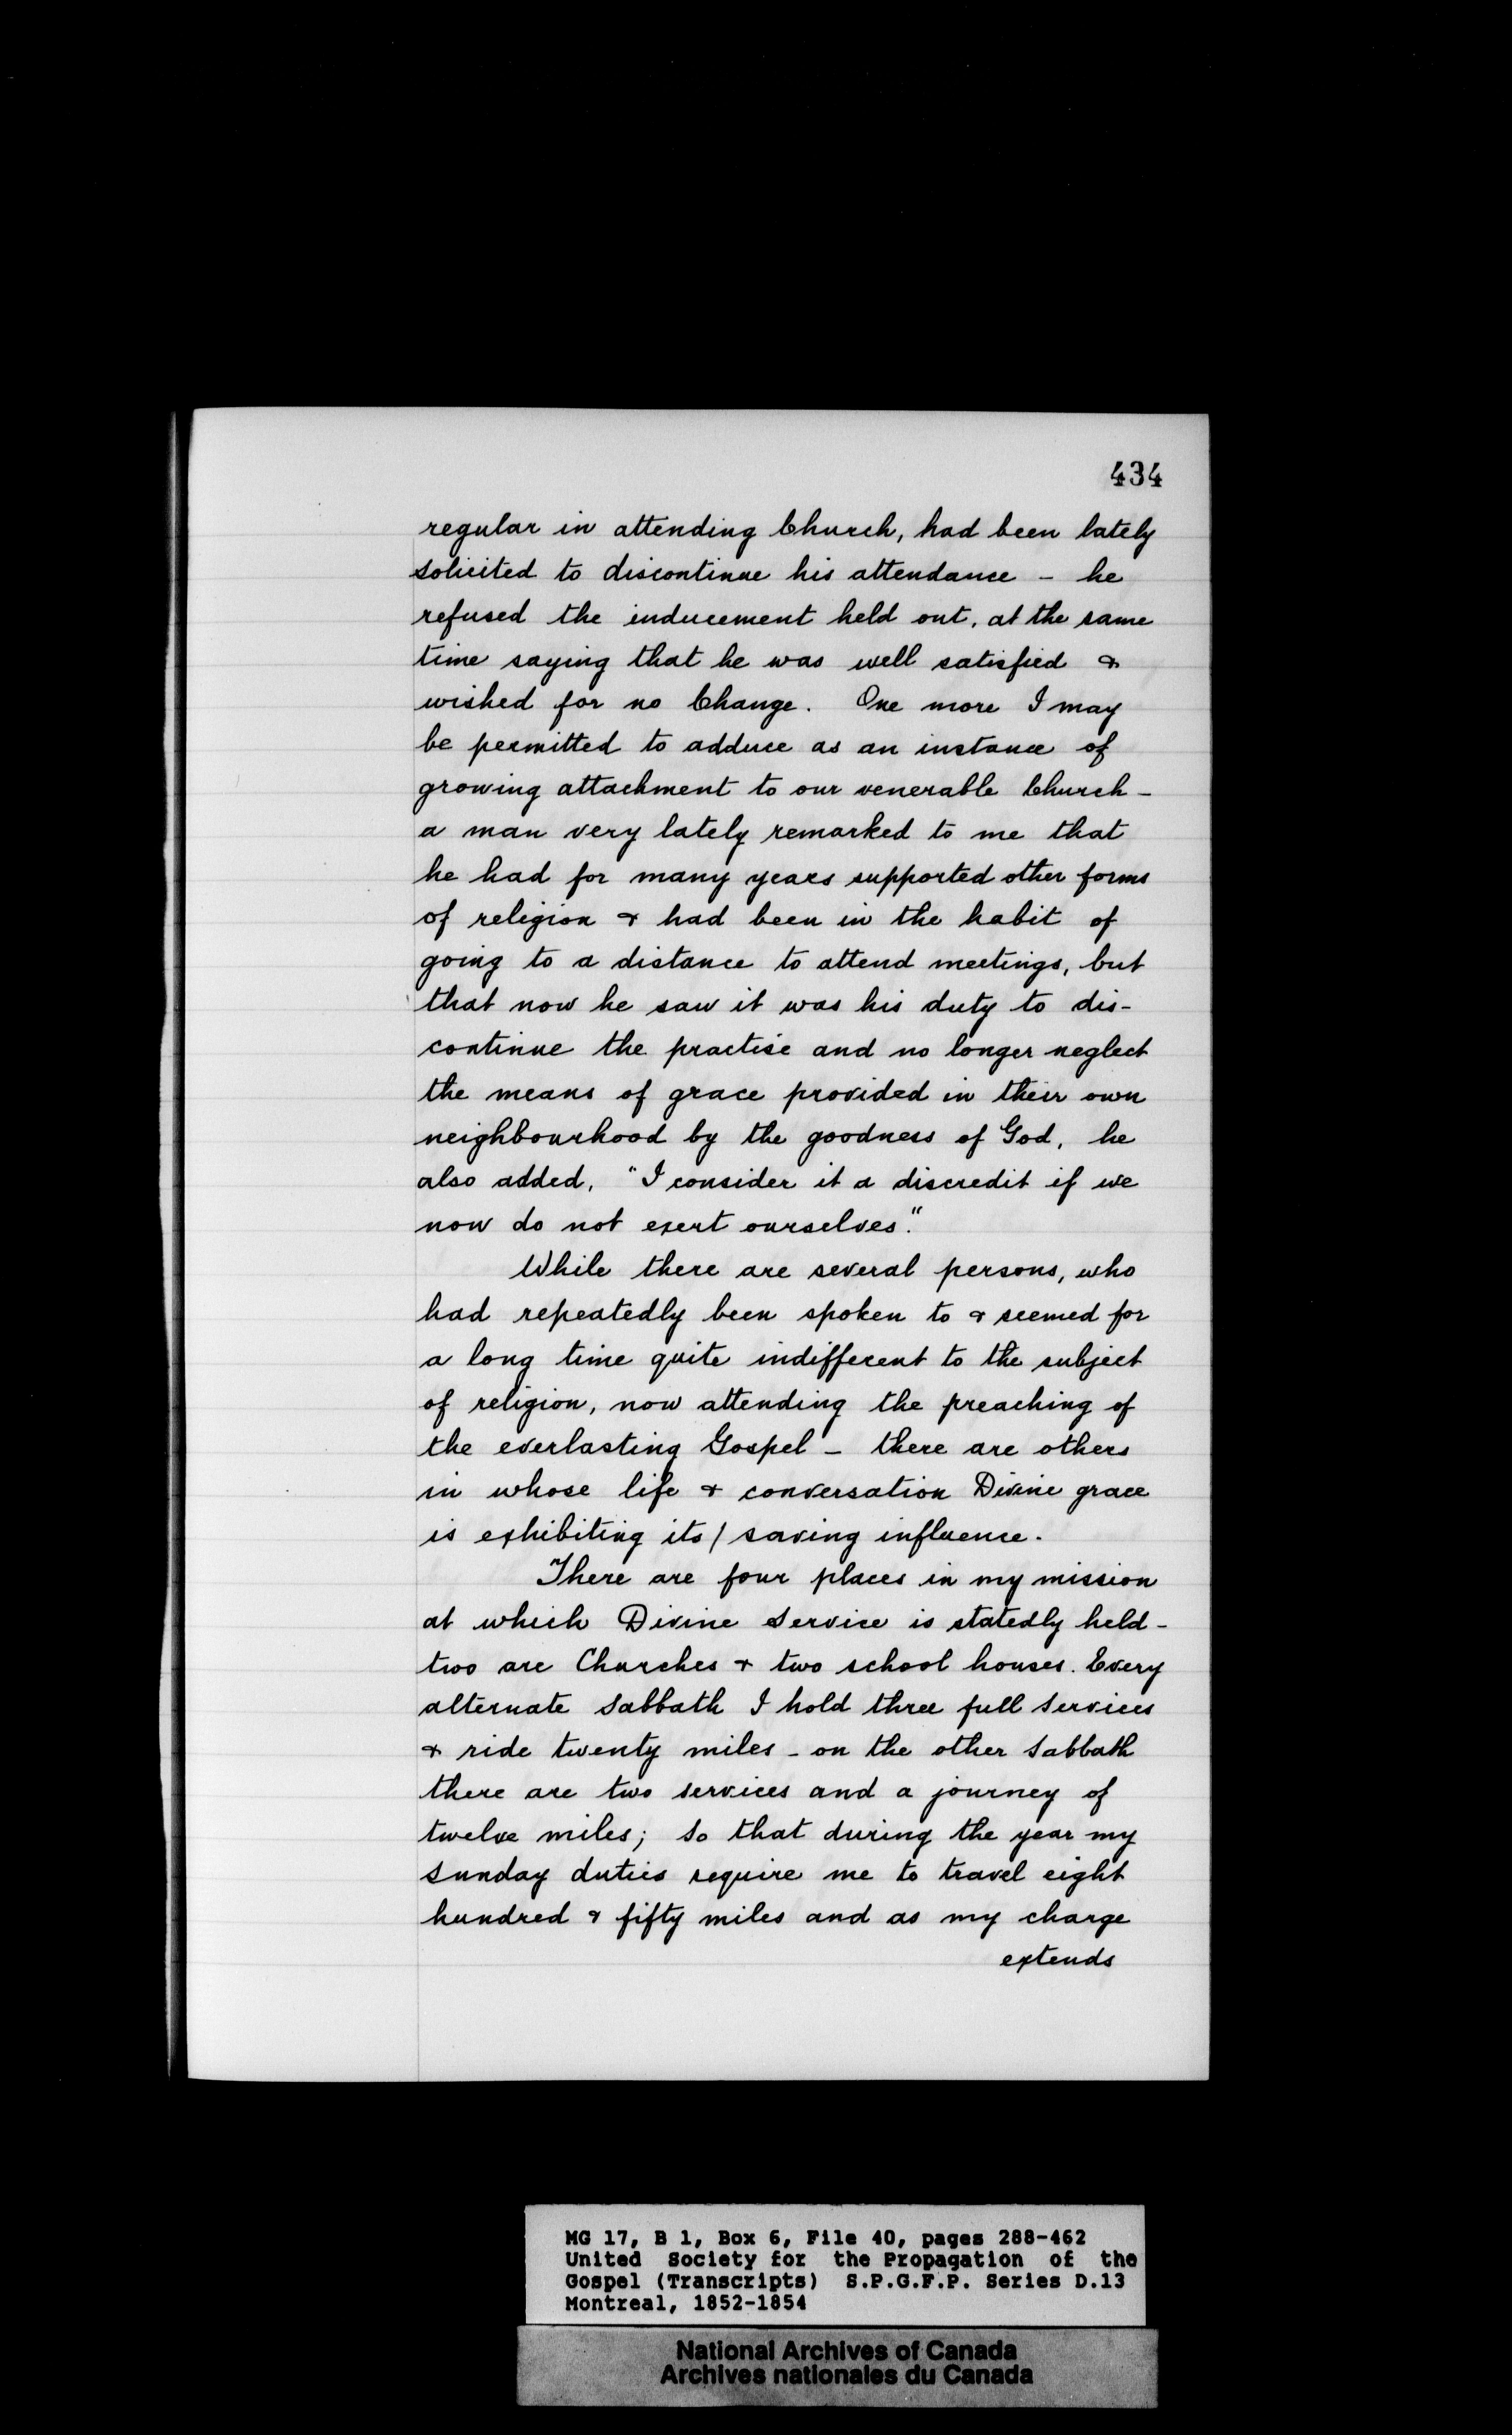 434
regular in attending Church, had been lately
solicited to discontinue his attendance - he
refused the inducement held out, at the same
time saying that he was well satisfied &
wished for no Change. One more I may
be permitted to adduce as an instance of
growing attachment to our venerable Church -
a man very lately remarked to me that
he had for many years supported other forms
of religion & had been in the habit of
going to a distance to attend meetings, but
that now he saw it was his duty to dis-
continue the practise and no longer neglect
the means of grace provided in their own
neighbourhood by the goodness of God, he
also added, "I consider it a discredit if we
now do not exert ourselves."
While there are several persons, who
had repeatedly been spoken to & seemed for
a long time quite indifferent to the subject
of religion, now attending the preaching of
the everlasting Gospel - there are others
in whose life & conversation Divine grace
is exhibiting its / saving influence.
There are four places in my mission
at which Divine Service is statedly held -
two are Churches & two school houses. Every
alternate Sabbath I hold three full Services
& ride twenty miles - on the other Sabbath
there are two services and a journey of
twelve miles; so that during the year my
Sunday duties require me to travel eight
hundred & fifty miles and as my charge
extends
MG 17, B 1, Box 6, File 40, pages 288-462
United Society for the Propagation of the
Gospel (Transcripts) S.P.G.F.P. Series D.13
Montreal, 1852-1854
National Archives of Canada
Archives nationales du Canada